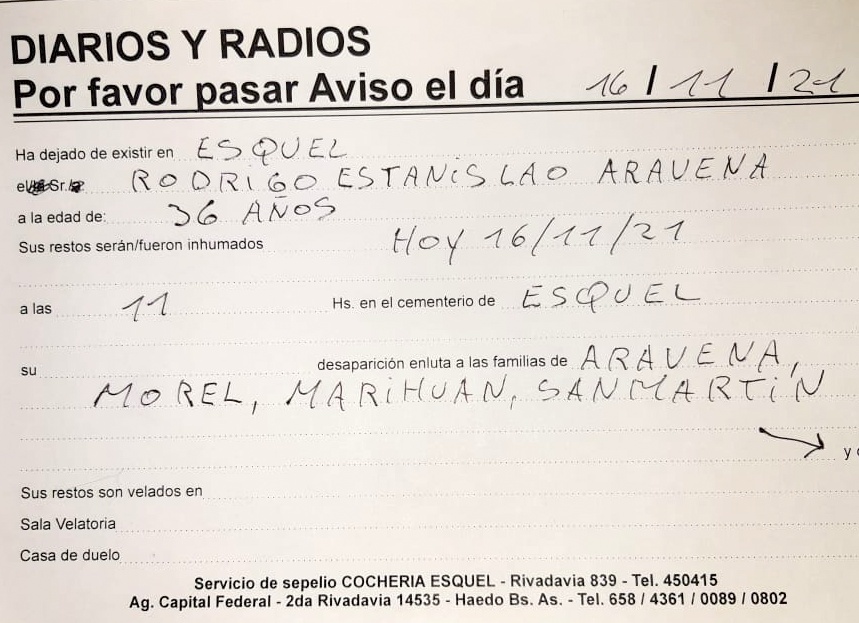 DIARIOS Y RADIOS
Por favor pasar Aviso el día 16 / 11 / 21
Ha dejado de existir en ESQUEL
el Sr. RODRIGO ESTANISLAO ARAVENA
a la edad de: 36 AÑOS
Sus restos serán/fueron inhumados HOY 16/11/21
a las 11 Hs. en el cementerio de ESQUEL
su desaparición enluta a las familias de ARAVENA,
MOREL, MARIHUAN, SANMARTIN
y
Sus restos son velados en
Sala Velatoria
Casa de duelo
Servicio de sepelio COCHERIA ESQUEL - Rivadavia 839 - Tel. 450415
Ag. Capital Federal - 2da Rivadavia 14535 - Haedo Bs. As. - Tel. 658 / 4361 / 0089 / 0802